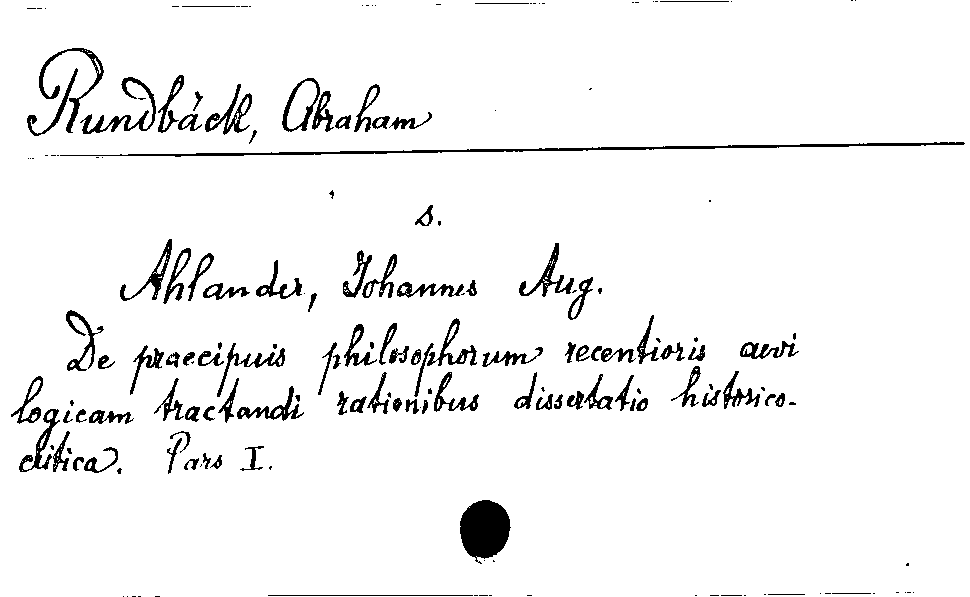 Rundbäck, Abraham
s.
Ahlander, Johannes Aug.
De praecipuis philosophorum recentioris aevi
logicam tractandi rationibus dissertatio historico-
critica. Pars I.